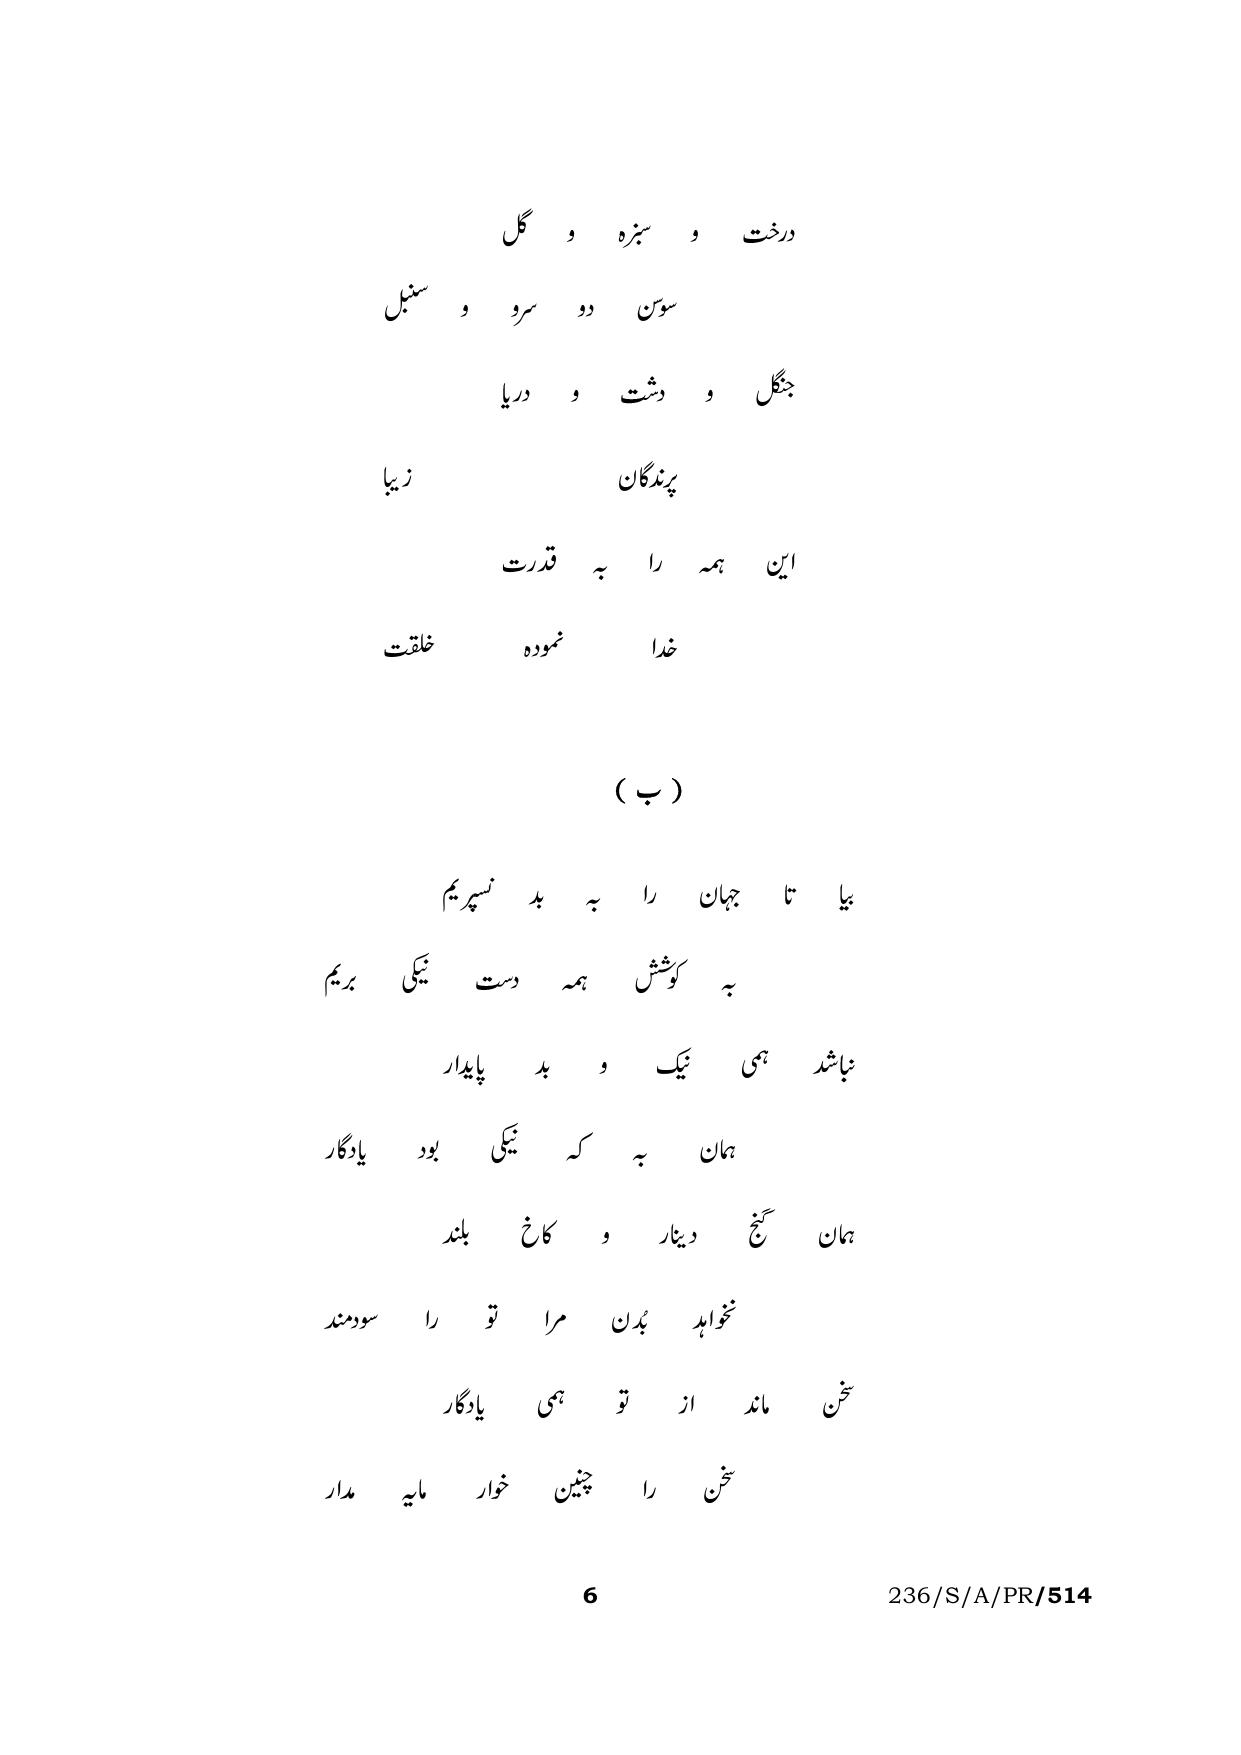 درخت و سبزہ و گل
سوسن دو سرو و سنبل
جنگل و دشت و دریا
پرندگان زیبا
این ہمہ را بہ قدرت
خدا نمودہ خلقت
( ب )
بیا تا جہان را بہ بد نسپریم
بہ کوشش ہمہ دست نیکی بریم
نباشد ہمی نیک و بد پایدار
ہمان بہ کہ نیکی بود یادگار
ہمان گنج دینار و کاخ بلند
نخواہد بُدن مرا تو را سودمند
سخن ماند از تو ہمی یادگار
سخن را چنین خوار مایہ مدار
6 236/S/A/PR/514